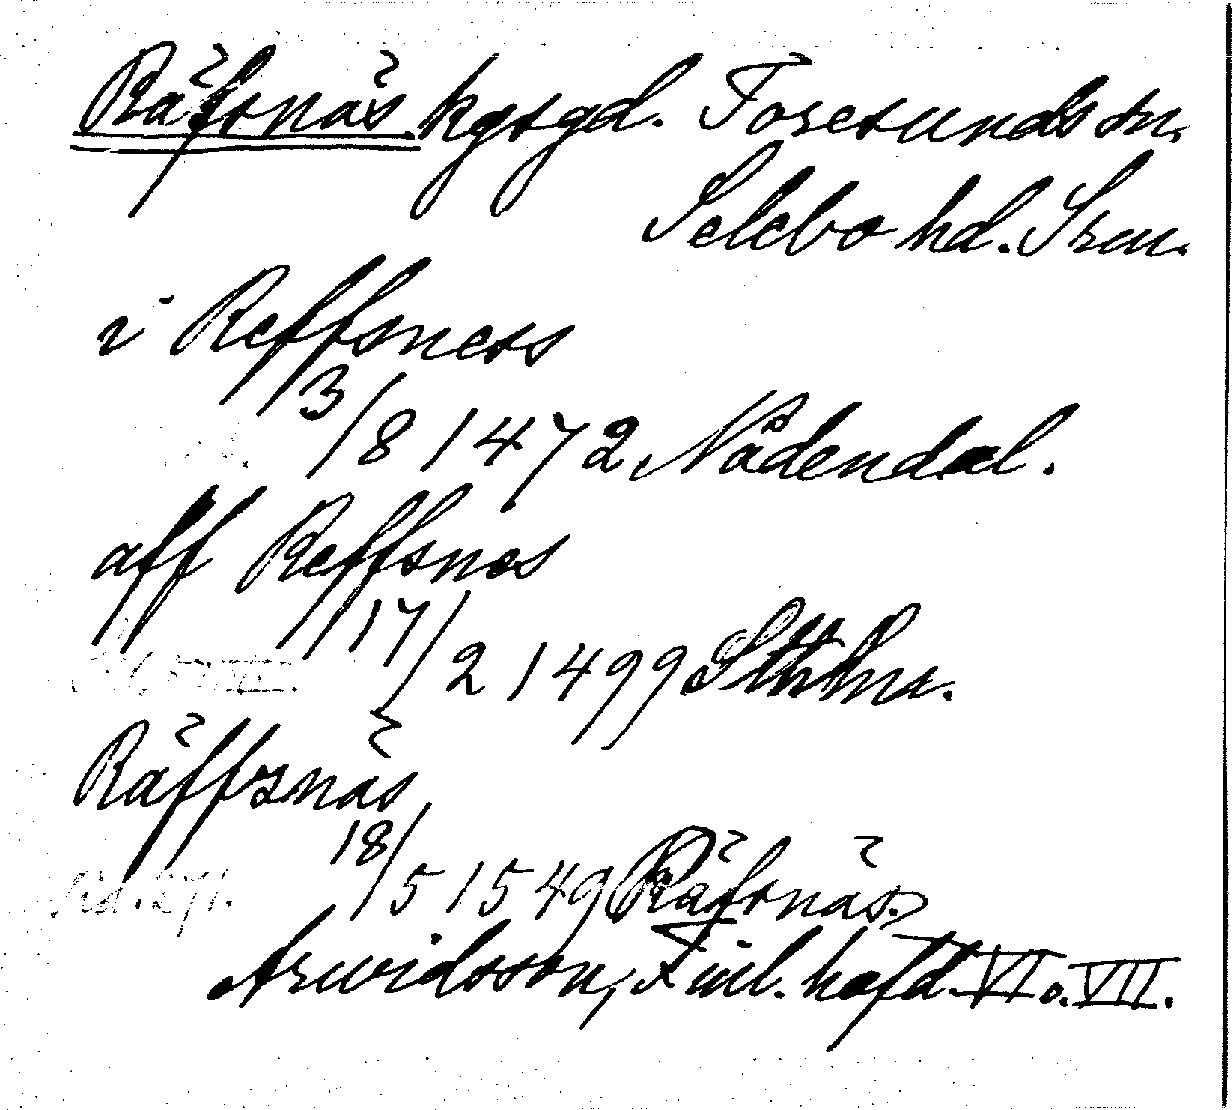 Räfsnäs kgsgd. Toresunds sn.
Selebo hd. Srm.
i Reffsness
3/8 1472 Nådendal.
aff Reffsnes
17/2 1499 Sthlm.
Räffsnäs
18/5 1549 Räfsnäs.
Arwidsson, Finl. hafd. VI o. VII.